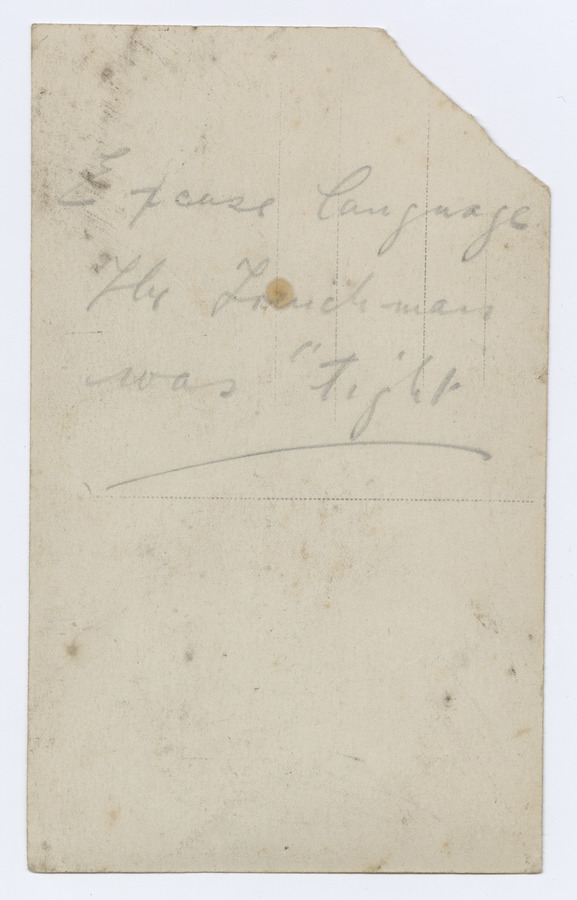 Excuse language
The Frenchman
was "tight